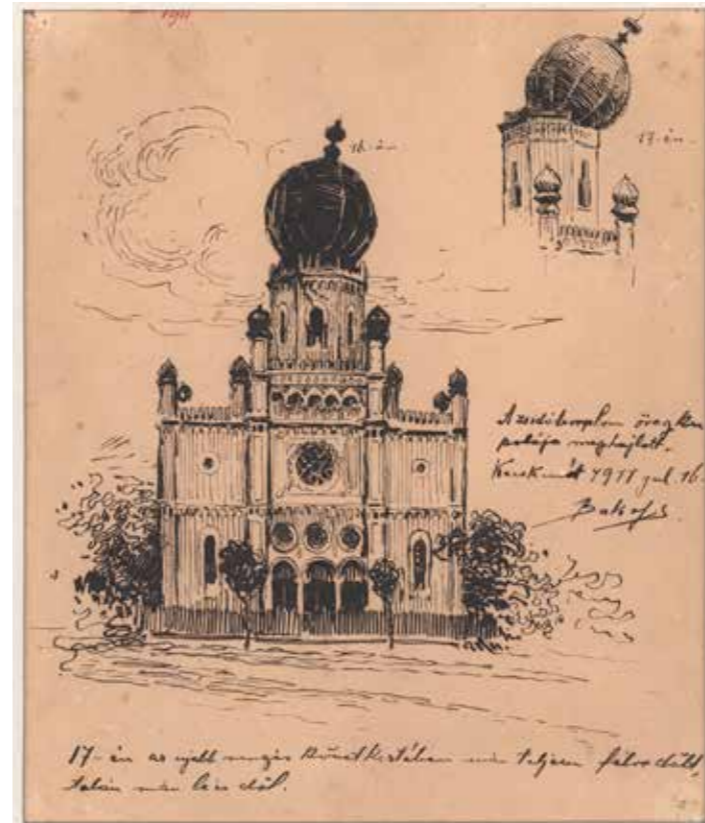 1911
16-án.
17-én.
A zsidótemplom öreg ku
polája meghajlott.
Kecskemét 1911 jul. 16.
17-én az ujabb rengés következtében már teljesen félredült,
talán már le is dől.